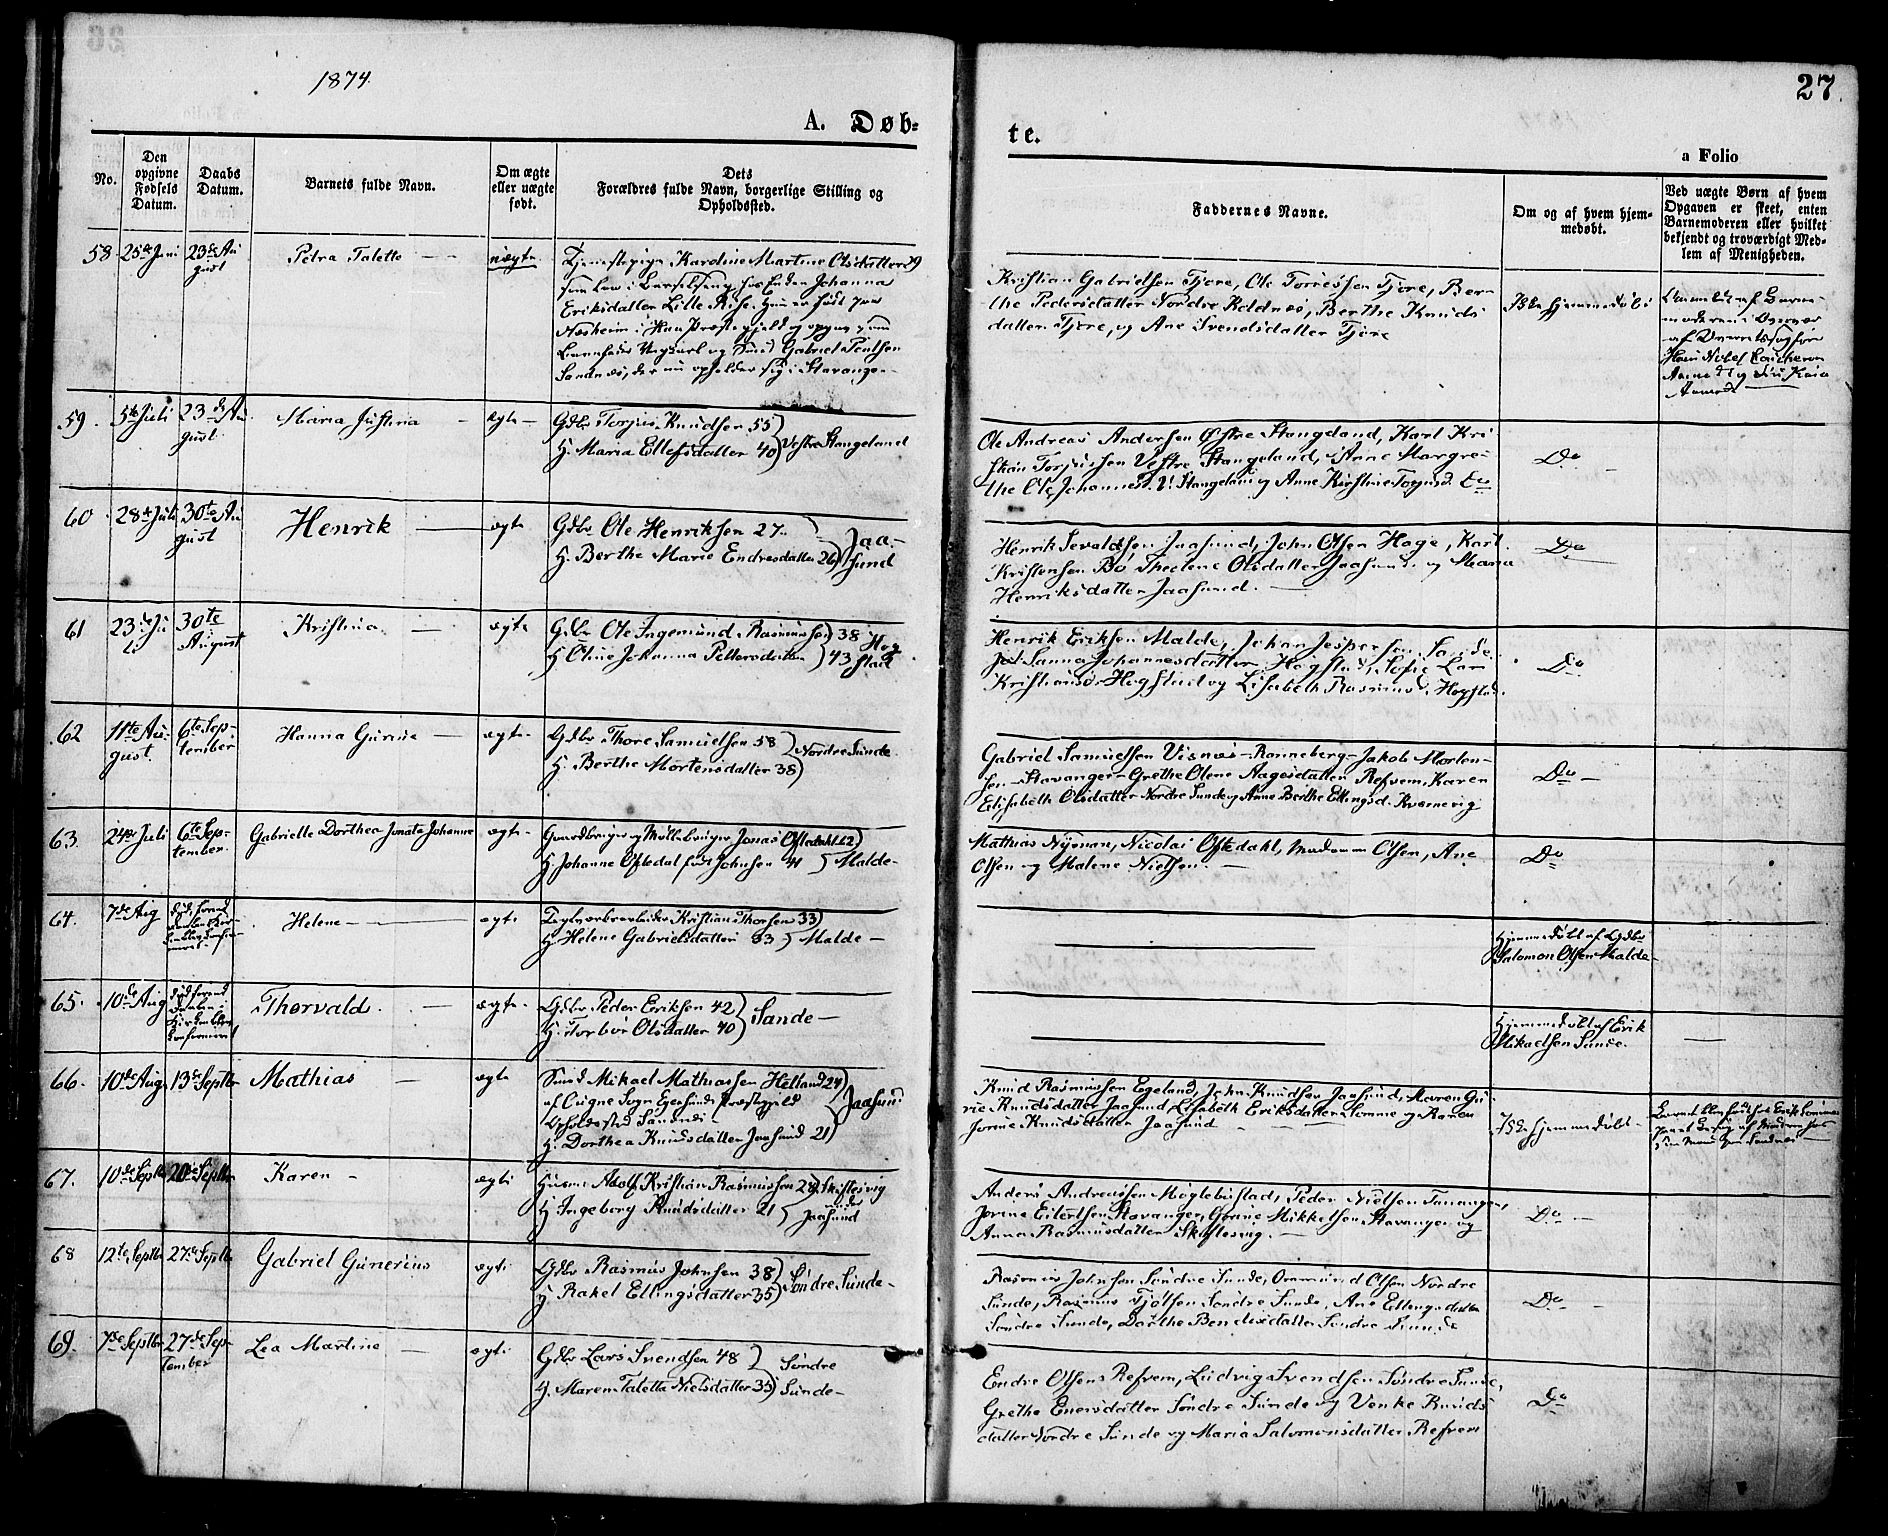 1874.
27.
A. Døb=
te.
a Folio
No.
Den
opgivne
Fødsels
Datum.
Daabs
Datum.
Barnets fulde Navn.
Om ægte
eller uægte
født.
Dets
Forældres fulde Navn, borgerlige Stilling og
Opholdssted.
Faddernes Navne.
Om og af hvem hjem-
medøbt.
Ved uægte Børn af hvem
Opgaven er skeet, enten
Barnemoderen eller hvilket
bekjendt og troværdigt Med-
lem af Menigheden.
58 25de Juni 23de Au
gust
Petra Talette
uægte
Tjenestepige Karoline Martine Olsdatter 29
Johanna
Eriksdatter Lille Risa. Hun er født paa
Præstegjeld og opgav som
Barnefader Ungkarl og Smed Gabriel
Sandnes, der nu opholder sig i Stavanger
Kristian Gabrielsen Tjore, Ole Torresen Tjore, Ber-
the Pedersdatter Nordre Koldnes, Berthe Knuds
datter Tjore, og Ane Svendsdatter Tjore
Ikke hjemmedøbt
59. 5te Juli 23de Au
gust.
Maria Justina
ægte
Gdbr Torjus Knudsen 55
H. Maria Ellefsdatter 40
Vestre Stangeland
Ole Andreas Andersen Østre Stangeland, Karl Kri
stian Torjussen Vestre Stangeland, Anne Margre-
the Ole Johannesd. V. Stangeland og Anne Kirstine
Do
60 28de Juli 30te Au
gust
Henrik
ægte
Gdbr Ole Henriksen 27
H. Berthe Marie Endresdatter 26
Jaa-
sund
Henrik Sevaldsen Jaasund, John Olsen Hage, Karl
Kristensen Bø Olsdatter Jaasund og Maria
Henriksdatter Jaasund.
Do
61 23de Ju
li
30te
August
Kristina
ægte
Gdbr Ole Ingemund Rasmussen 38
H Oline Johanna Pettersdatter 43
Hog
stad
Henrik Eriksen Malde, Johan Jespersen Sande
Sanna Johannesdatter Hogstad, Sofie
Kristiansd. Hogstad og Lisabeth Rasmusd. Hogstad.
Do
62 11te Au-
gust.
6te Sep-
tember
Hanna Gurine
ægte
Gdbr Thore Samuelsen 58
H. Berthe Mortensdatter 38
Nordre Sunde
Gabriel Samuelsen Visnes Ranneberg Jakob Morten-
sen Stavanger Grethe Olene Aagesdatter Refvem, Karen
Elisabeth Olsdatter Nordre Sunde og Anne Berthe Ellingsd. Kvernevig
Do
63. 24de Juli 6te Sep-
tember.
Gabrielle Dorthea Jonata Johanne
ægte
Gaardbruger og Møllebruger Jonas Oftedahl 42
H Johanne Oftedal født Johnsen 41
Malde
Mathias Nyman, Nicolai Oftedahl, Madamm Olsen, Ane
Olsen og Malene Nielsen.
Do
64. 7de Aug
Helene
ægte
Teglværksarbeider Kristian Thorsen 33
H Helene Gabrielsdatter 33
Malde
Hjemmedøbt af Gdbr
Salomon Olsen Malde
65. 10de Aug
død forend
Thorvald.
ægte
Gdbr Peder Eriksen 42
H Torbor Olsdatter 40
Sande
Hjemmedøbt af Erik
Mikaelsen Sunde.
66. 10de Aug 13de Septbr
Mathias
ægte
Smed Mikael Mathiassen Helland 24
Sogn Egersunds Præstegjeld
Opholdssted Sandnes
H. Dorthea Knudsdatter Jaasund 21
Jaasund
Knud Rasmussen Egeland, John Knudsen Jaasund, Maren Gu-
rie Knudsdatter Jaasund, Lisabeth Eriksdatter Somme og Karen
Jorine Knudsdatter Jaasund
Ikke hjemmedøbt
67. 10de Septbr 20de Septbr
Karen
ægte
Adolf Kristian Rasmussen 28
H Ingeborg Knudsdatter 21
Skiftesvig
Jaasund
Anders Andreassen Møglebustad, Peder Nielsen Tananger,
Jorine Eilertsen Stavanger, Mikkelsen Stavanger og
Anna Rasmusdatter Skiftesvig.
Do
68 12te Septbr 27de Septbr
Gabriel Gunerius
ægte
Gdbr Rasmus Johnsen 38
H. Rakel Ellingsdatter 35
Søndre Sunde
Rasmus Johnsen Søndre Sunde, Ommund Olsen Nordre
Sunde, Rasmus Søndre Sunde, Ane Ellingsdatter
Søndre Sunde, Dorthe Bendixdatter Søndre Sunde
Do
69. 7de Septbr 27de Sep-
tember
Lea Martine
ægte
Gdbr Lars Svendsen 48
H. Maren Taletta Nielsdatter 35
Søndre
Sunde
Endre Olsen Refvem, Ludvig Svendsen Søndre Sunde,
Grethe Enersdatter Søndre Sunde og Venke Knuds
datter Nordre Sunde og Maria Salomonsdatter Refvem
Do